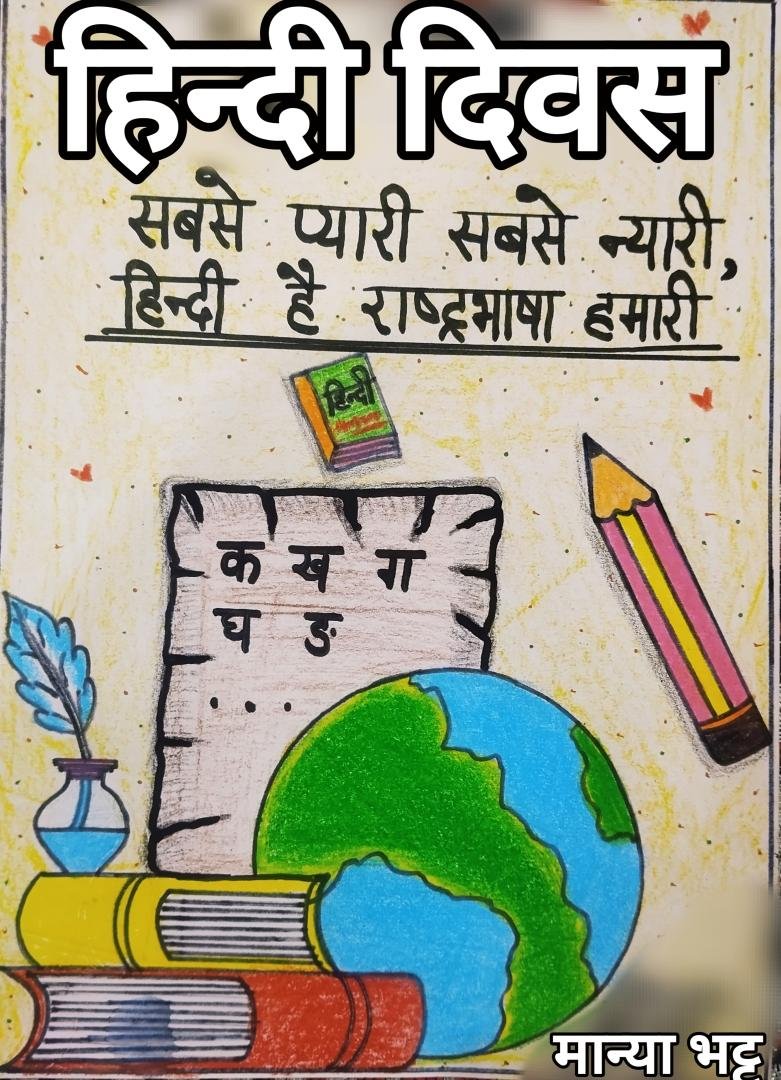 हिन्दी दिवस
सबसे प्यारी सबसे न्यारी,
हिन्दी है राष्ट्रभाषा हमारी
हिन्दी
क ख ग
घ ङ
...
मान्या भट्ट